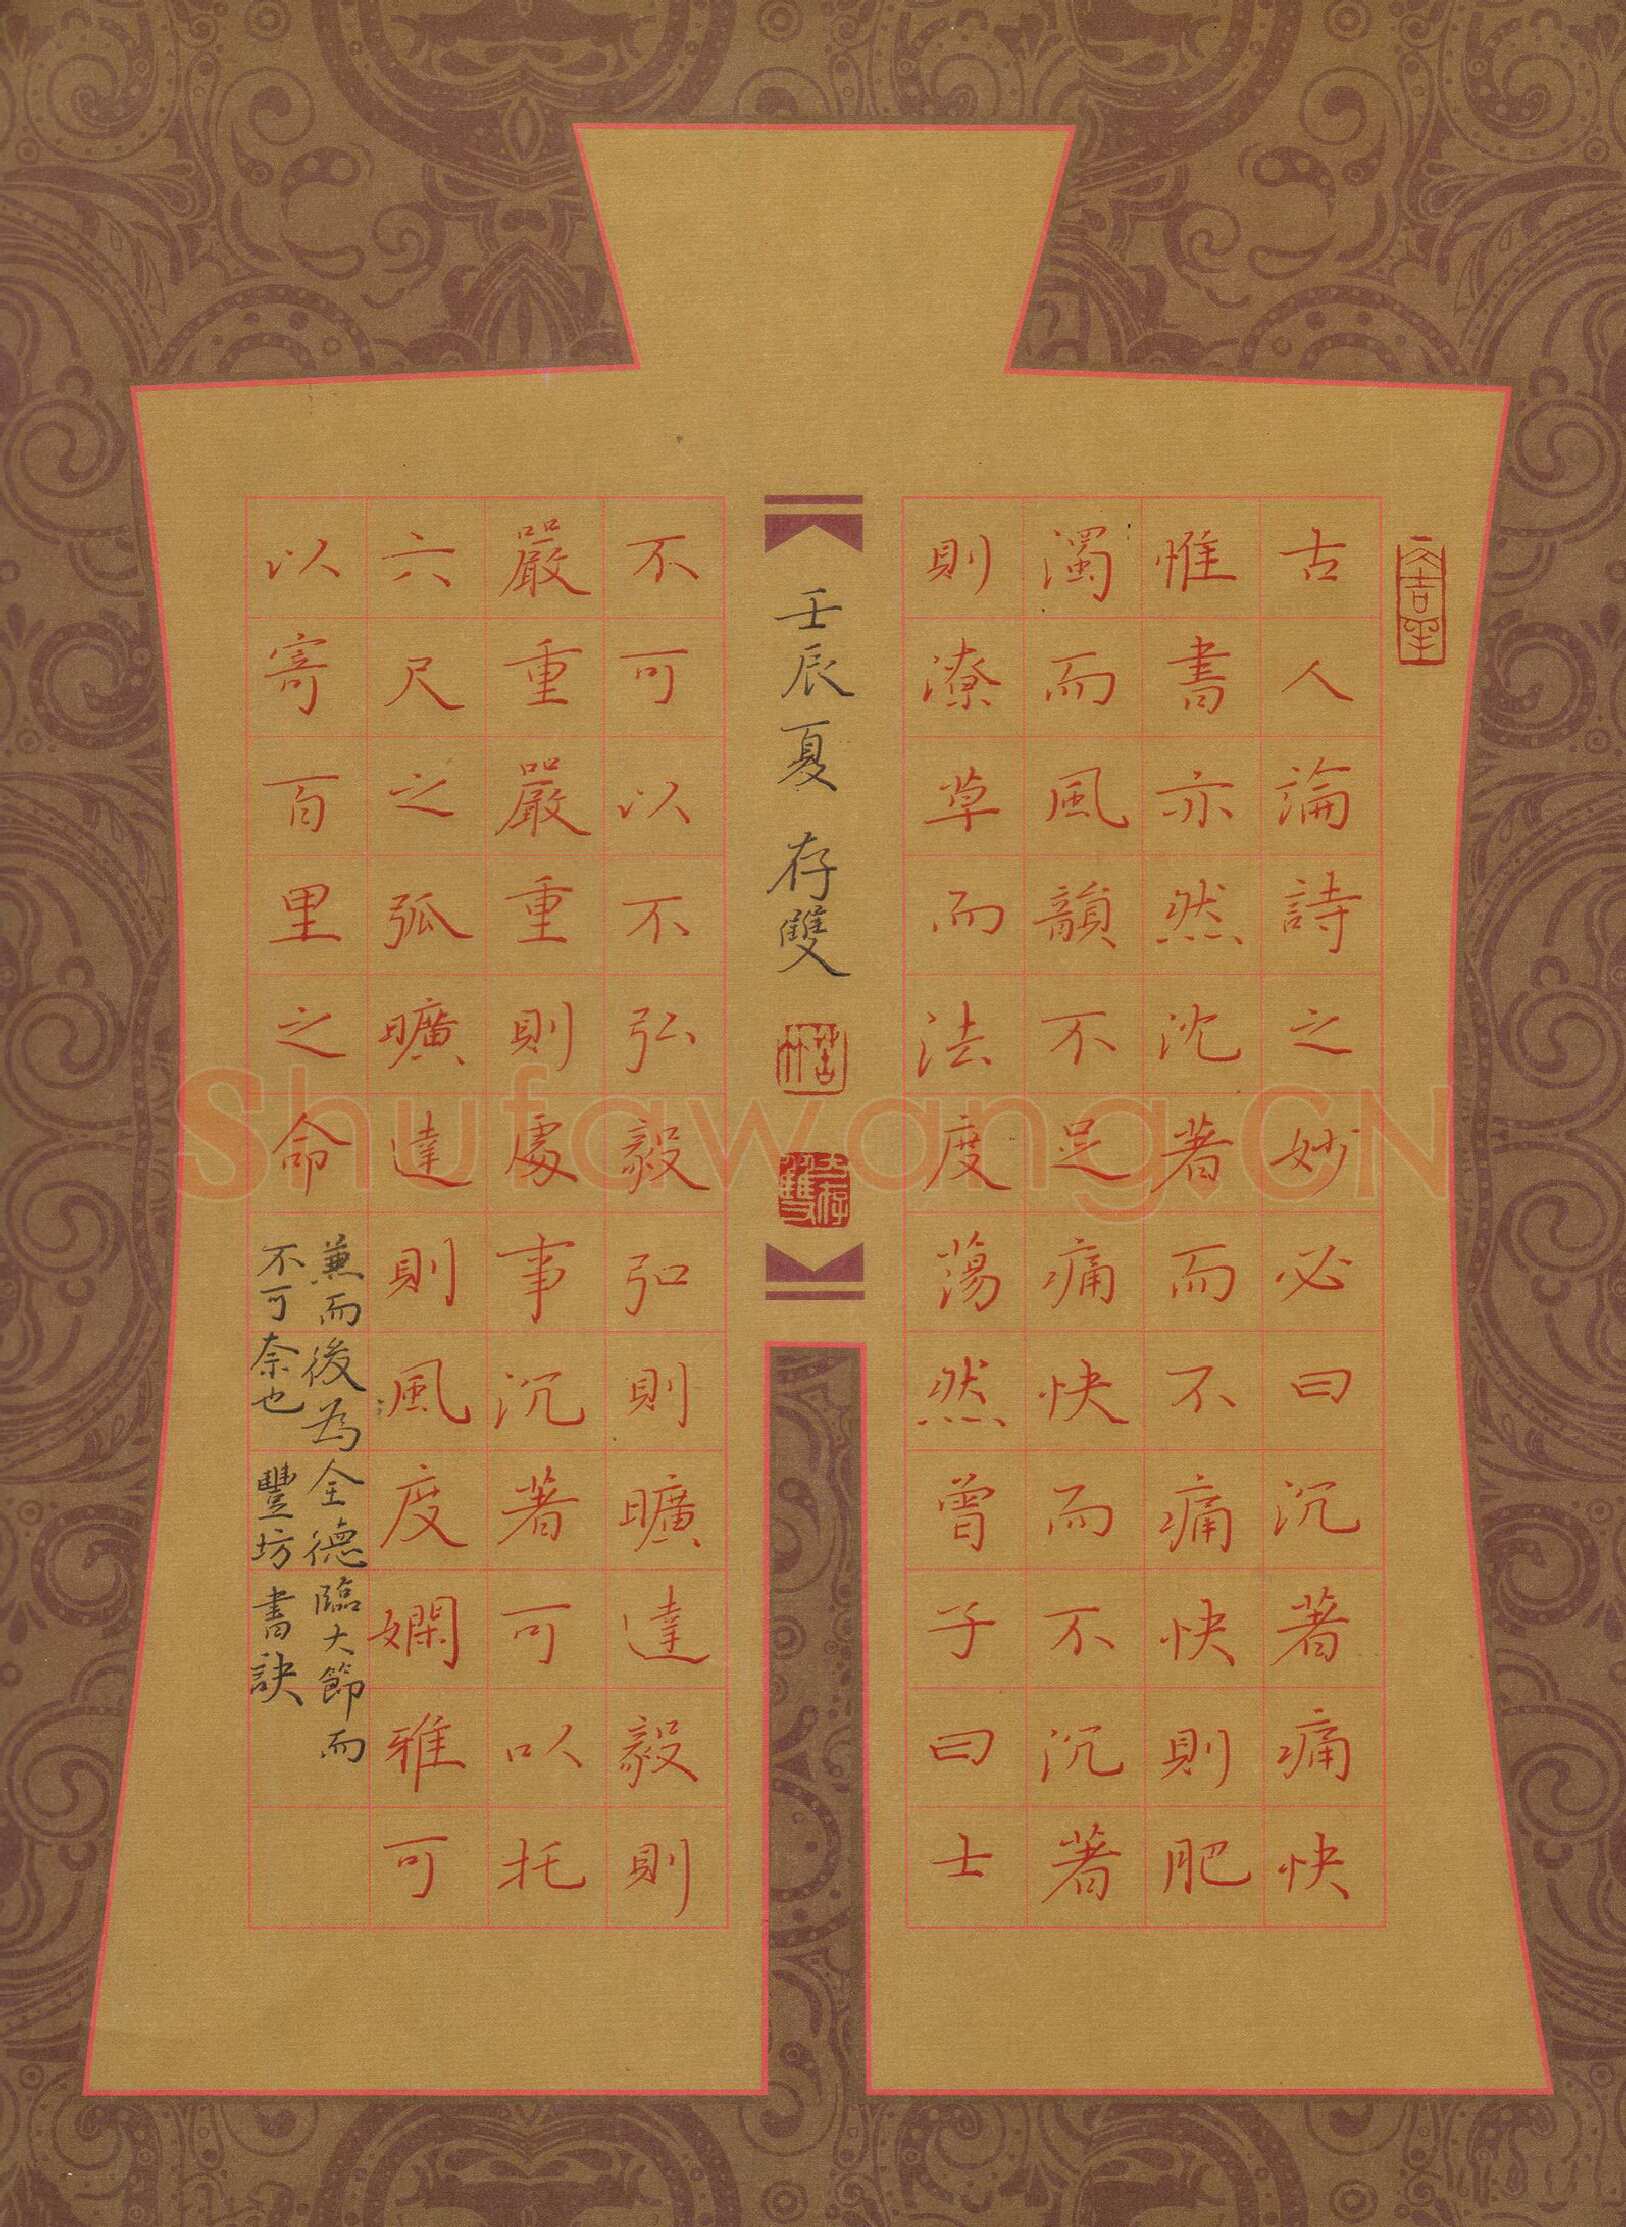 大吉羊
古人論詩之妙必曰沉著痛快
惟書亦然沈著而不痛快則肥
濁而風韻不足痛快而不沉著
則潦草而法度蕩然曾子曰士
壬辰夏 存雙
不可以不弘毅弘則曠達毅則
嚴重嚴重則處事沉著可以托
六尺之弧曠達則風度嫻雅可
以寄百里之命
兼而後為全德臨大節而
不可奈也 豐坊書訣
Shufawang.CN